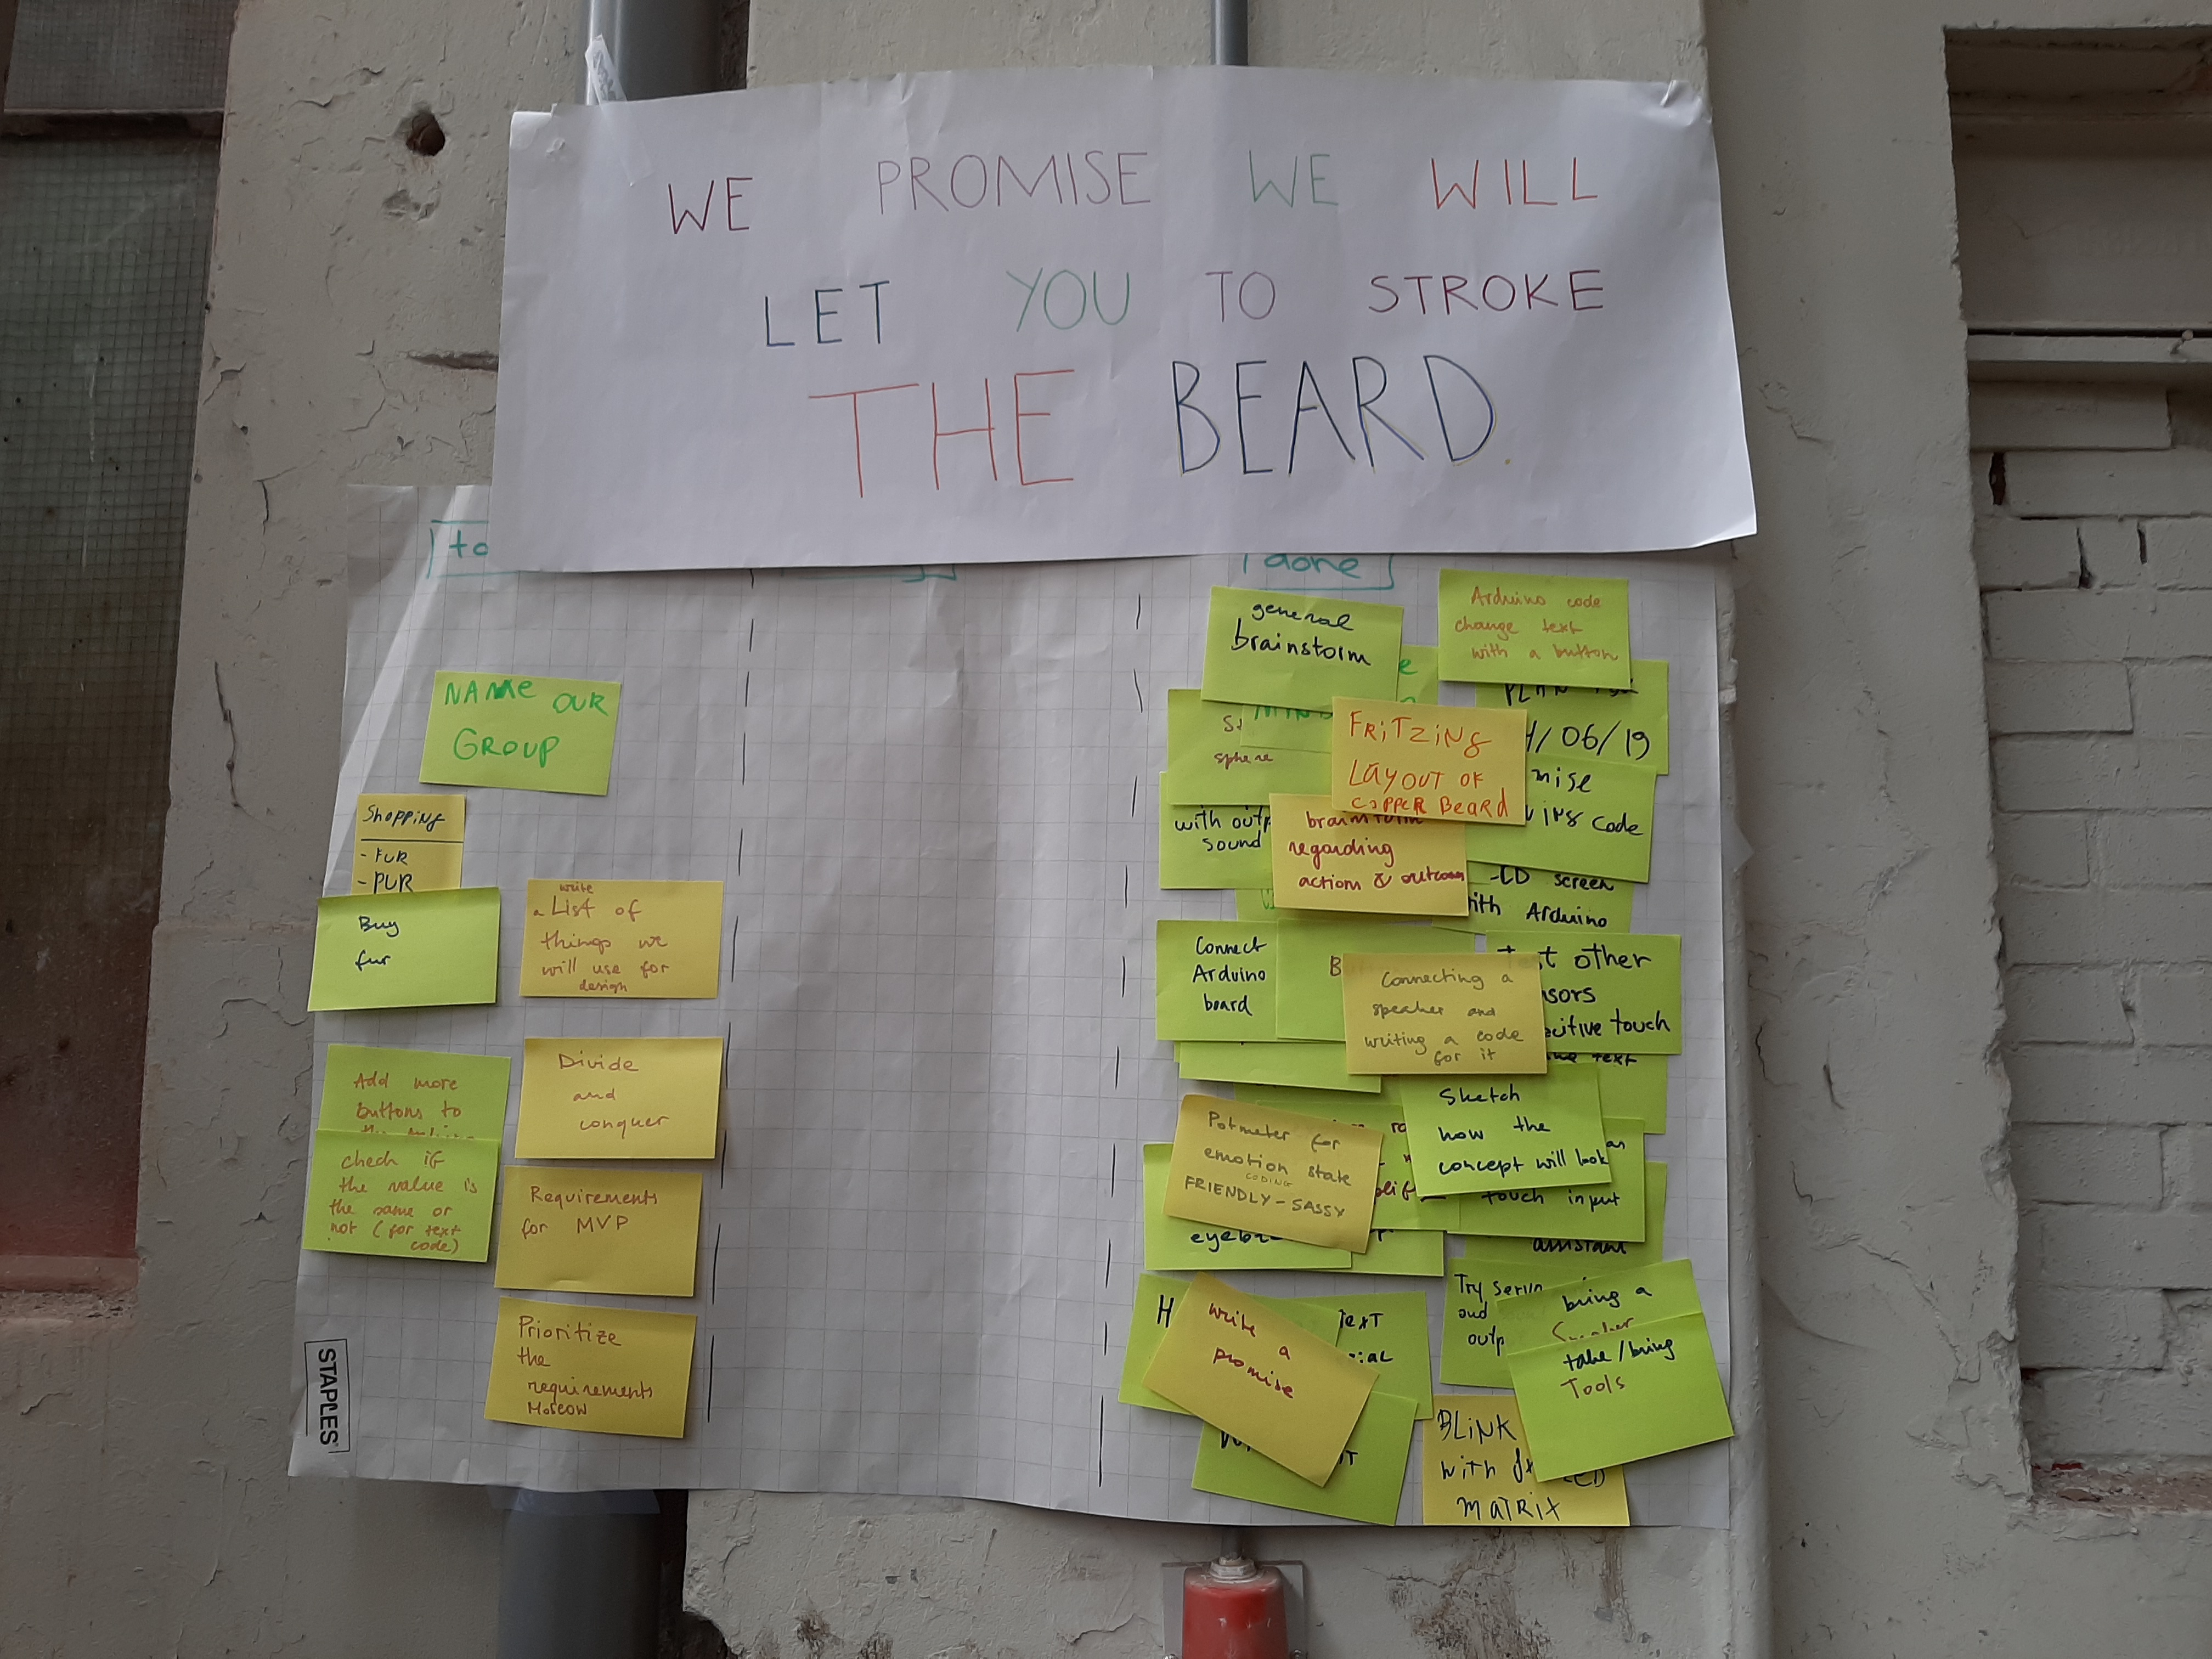 WE PROMISE WE WILL
LET YOU TO STROKE
THE BEARD.
done
NAME OUR
GROUP
Shopping
- FUR
- PUR
Buy
fur
write
a List of
things we
will use for
design
Add more
buttons to
check if
the value is
the same or
not (for text
code)
Divide
and
conquer
Requirements
for MVP
Prioritize
the
requirements
Moscow
STAPLES
general
brainstorm
Arduino code
change text
with a button
PLAN
/06/19
sphere
FRiTZiNg
LAYOUT OF
COPPER BEARD
code
with
sound
brainstorm
regarding
actions & outcomes
screen
Arduino
Connect
Arduino
board
other
touch
Connecting a
speaker and
writing a code
for it
text
Sketch
how the
concept will look
touch input
assistant
Potmeter for
emotion state
CODING
FRIENDLY - SASSY
Try servo
and
bring a
take/bring
Tools
write
a
promise
BLiNK
with
MATRIX